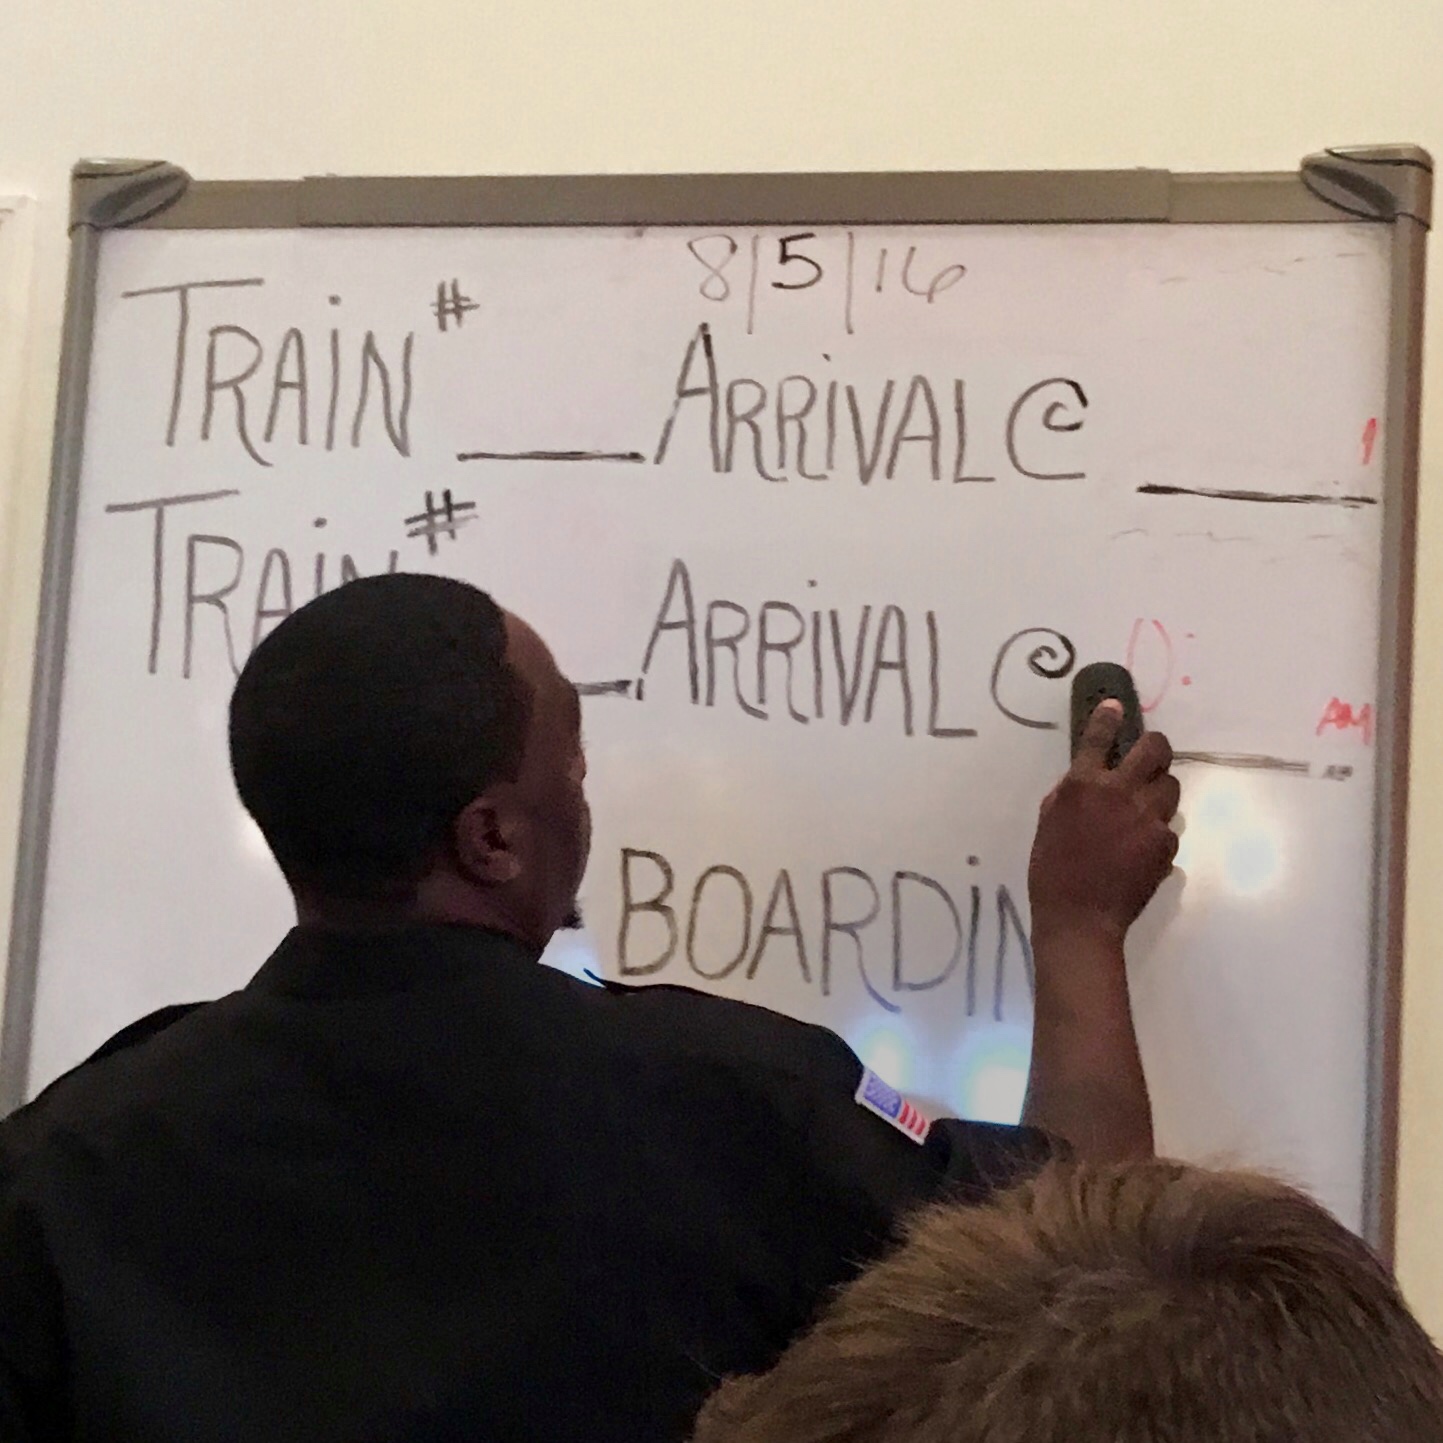 8/5/16
TRAIN # ___ ARRIVAL @ ___
TRAIN # ___ ARRIVAL @ 0: AM
BOARDIN